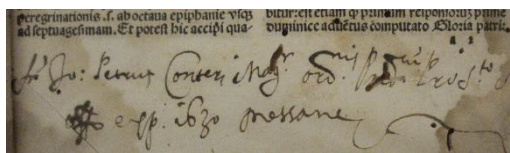 peregrinationis .ſ. ab octaua epiphanie vſqꝫ
ad ſeptuageſimam. Et poteſt hic accipi qua-
bitur: eſt etiam ꝙ primum reſponſoriũ prime
dominice aduẽtus cõputato Gloria patri:
fr Jo: Petrus Conteri Magr ord.
exp. 1630 messane